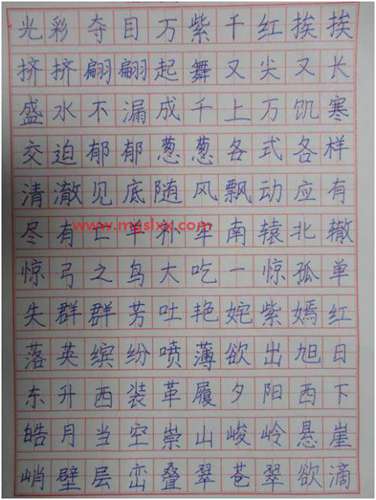 光彩夺目万紫千红挨挨
挤挤翩翩起舞又尖又长
盛水不漏成千上万饥寒
交迫郁郁葱葱各式各样
清澈见底随风飘动应有
www.mgslxx.com
尽有亡羊补牢南辕北辙
惊弓之鸟大吃一惊孤单
失群群芳吐艳姹紫嫣红
落英缤纷喷薄欲出旭日
东升西装革履夕阳西下
皓月当空崇山峻岭悬崖
峭壁层峦叠翠苍翠欲滴